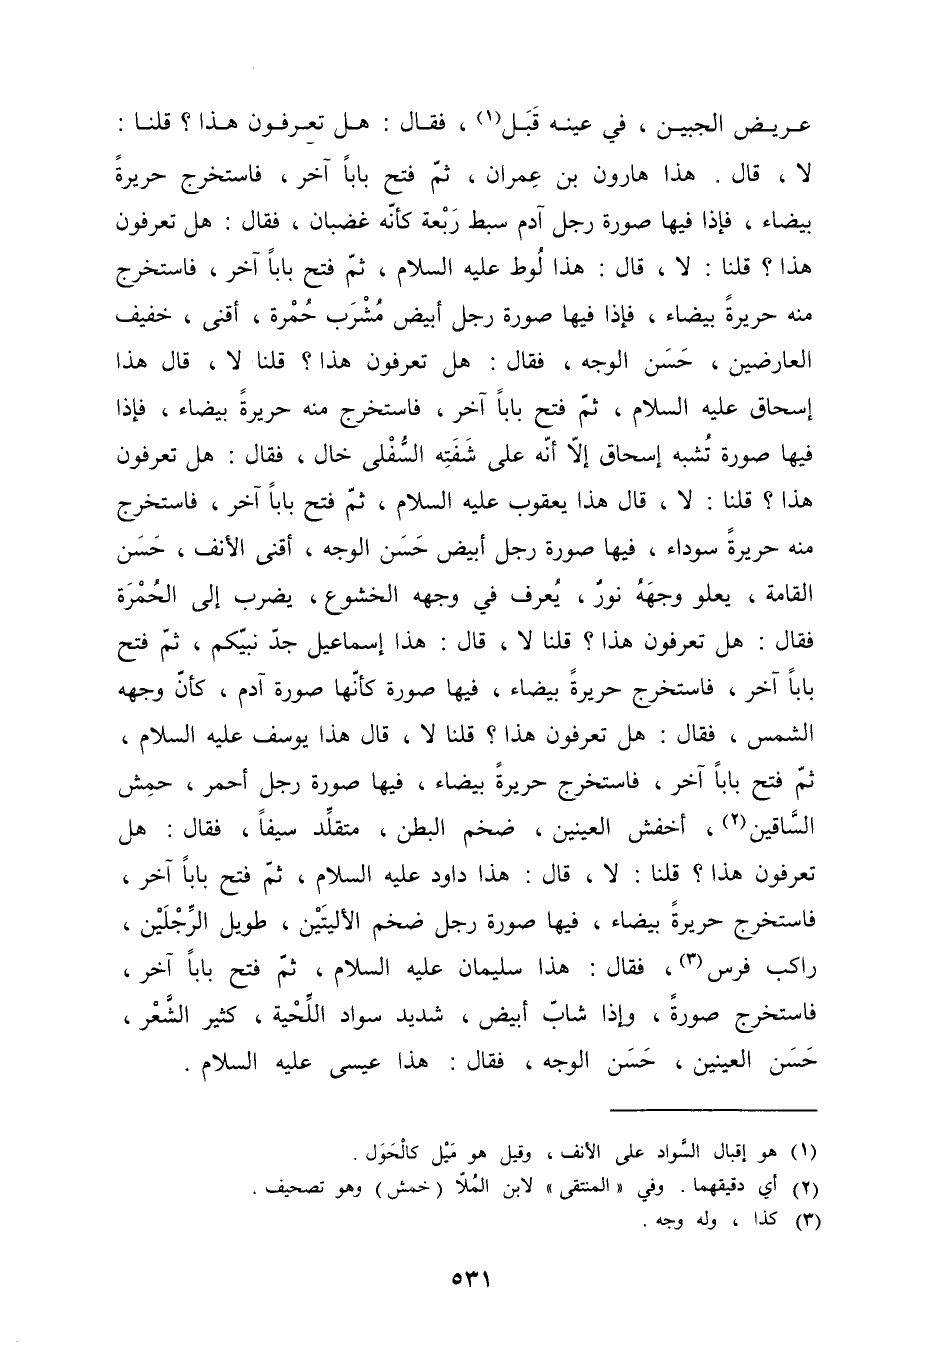 عريض الجبين ، في عينه قَبَل(١) ، فقال : هل تعرفون هذا ؟ قلنا :
لا ، قال . هذا هارون بن عِمران ، ثمّ فتح باباً آخر ، فاستخرج حريرةً
بيضاء ، فإذا فيها صورة رجل آدم سبط رَبْعة كأنّه غضبان ، فقال : هل تعرفون
هذا ؟ قلنا : لا ، قال : هذا لُوط عليه السلام ، ثمّ فتح باباً آخر ، فاستخرج
منه حريرةً بيضاء ، فإذا فيها صورة رجل أبيض مُشْرَب حُمْرة ، أقنى ، خفيف
العارضين ، حَسَن الوجه ، فقال : هل تعرفون هذا ؟ قلنا لا ، قال هذا
إسحاق عليه السلام ، ثمّ فتح باباً آخر ، فاستخرج منه حريرةً بيضاء ، فإذا
فيها صورة تُشبه إسحاق إلاّ أنّه على شَفَتِه السُّفْلى خال ، فقال : هل تعرفون
هذا ؟ قلنا : لا ، قال هذا يعقوب عليه السلام ، ثمّ فتح باباً آخر ، فاستخرج
منه حريرةً سوداء ، فيها صورة رجل أبيض حَسَن الوجه ، أقنى الأنف ، حَسَن
القامة ، يعلو وجهَهُ نورٌ ، يُعرف في وجهه الخشوع ، يضرب إلى الحُمْرَة
فقال : هل تعرفون هذا ؟ قلنا لا ، قال : هذا إسماعيل جدّ نبيّكم ، ثمّ فتح
باباً آخر ، فاستخرج حريرةً بيضاء ، فيها صورة كأنّها صورة آدم ، كأنّ وجهه
الشمس ، فقال : هل تعرفون هذا ؟ قلنا لا ، قال هذا يوسف عليه السلام ،
ثمّ فتح باباً آخر ، فاستخرج حريرةً بيضاء ، فيها صورة رجل أحمر ، حمِش
السَّاقين(٢) ، أخفش العينين ، ضخم البطن ، متقلِّد سيفاً ، فقال : هل
تعرفون هذا ؟ قلنا : لا ، قال : هذا داود عليه السلام ، ثمّ فتح باباً آخر ،
فاستخرج حريرةً بيضاء ، فيها صورة رجل ضخم الأليتَيْن ، طويل الرِّجْلَيْن ،
راكب فرس(٣) ، فقال : هذا سليمان عليه السلام ، ثمّ فتح باباً آخر ،
فاستخرج صورةً ، وإذا شابّ أبيض ، شديد سواد اللِّحْية ، كثير الشَّعْر ،
حَسَن العينين ، حَسَن الوجه ، فقال : هذا عيسى عليه السلام .
(١) هو إقبال السَّواد على الأنف ، وقيل هو مَيْل كالْحَوَل .
(٢) أي دقيقهما . وفي « المنتقى » لابن المُلاّ ( خمش ) وهو تصحيف .
(٣) كذا ، وله وجه .
٥٣١